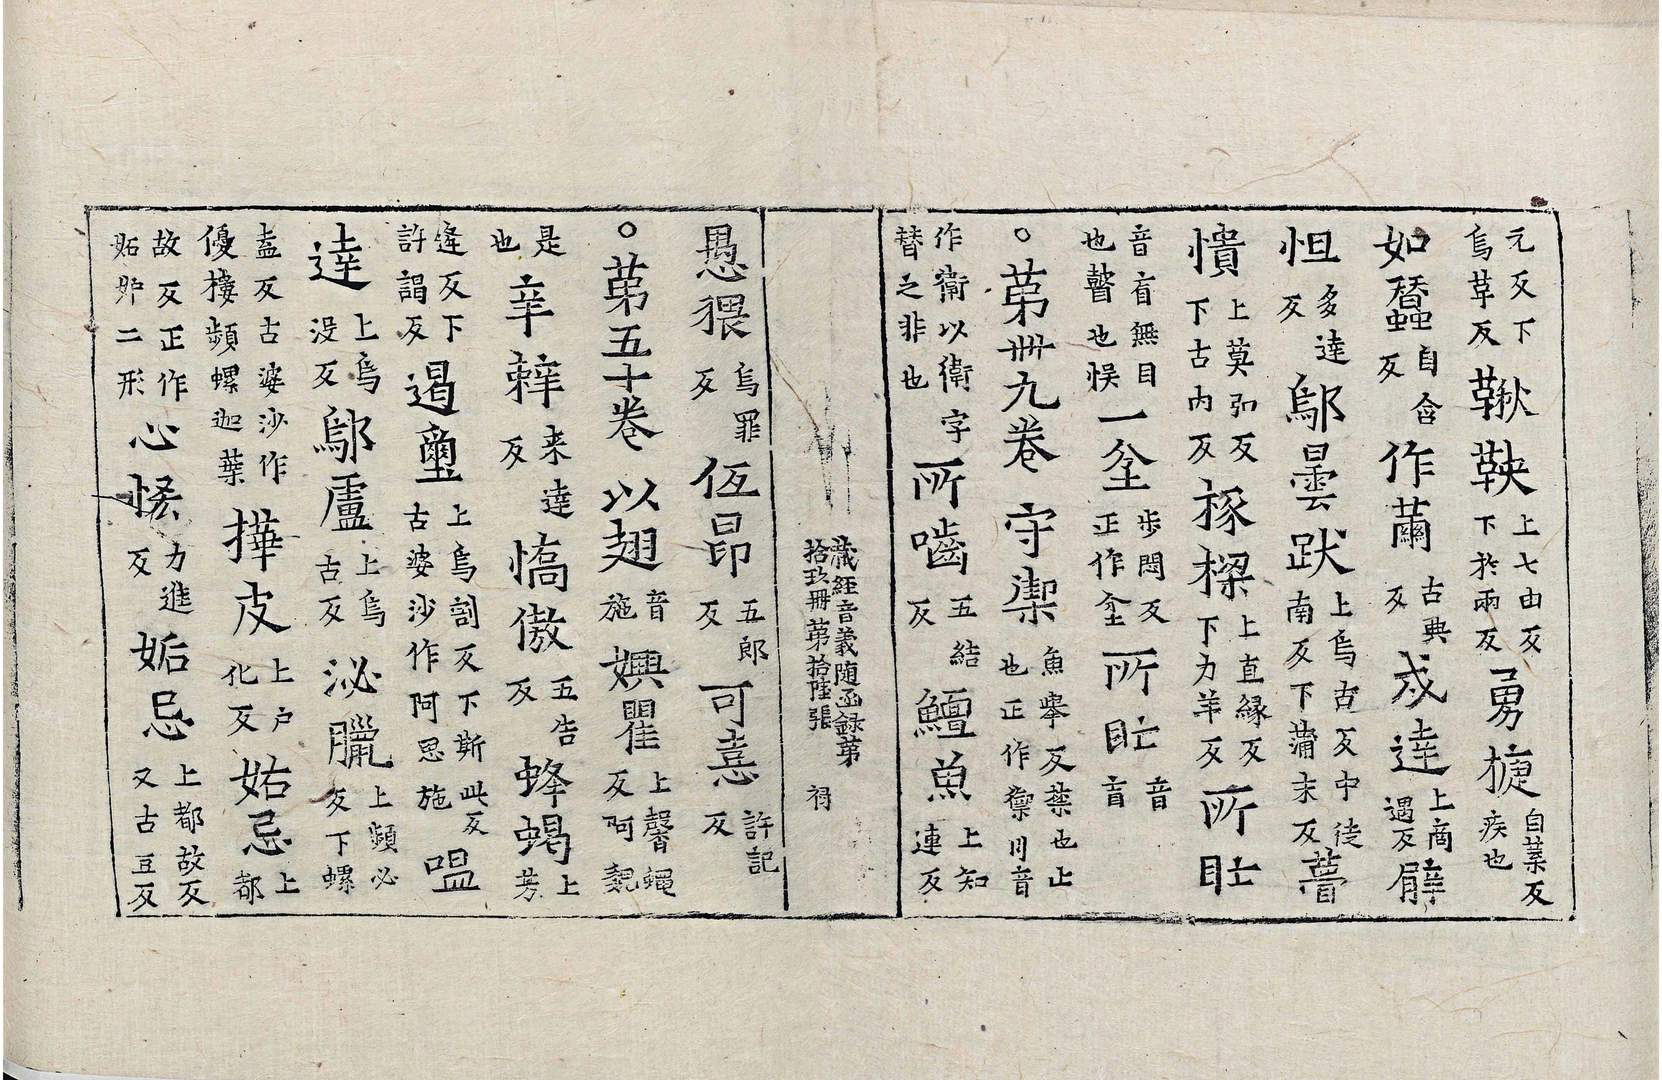 元反下烏草反鞦鞅上七由反下於兩反勇㨗自葉反疾也
如蠶自含反作蠒古典反戍達上商遇反㿱
怛多達反鄔曇跋上烏古反中徒南反下蒲末反瞢
憒上莫弘反下古內反椽樑上直緣反下力羊反所盳
音盲無目也瞽也悮一坌步悶反正作坌所盳音盲
○第卌九卷守禦魚舉反禁也止也正作禦川音
作衛以衛字替之非也所嚙五結反鱣魚上知連反
藏經音義隨函錄第拾玖冊第拾陸張
愚猥烏罪反伍昂五郎反可憙許記反
○第五十卷以翅音施嬹瞿上馨蠅反阿魏
是也辛辢来達反憍傲五告反蜂蝎上芳
逄反下許謁反遏壐上烏割反下斯此反古婆沙作阿思施嗢
達上烏沒反鄔盧上烏古反泌臘上頻必反下螺
盍反古婆沙作優樓頻螺迦葉撶皮上户化反妬忌上都
故反正作妬妒二形心悋力進反姤忌上都故反又古豆反